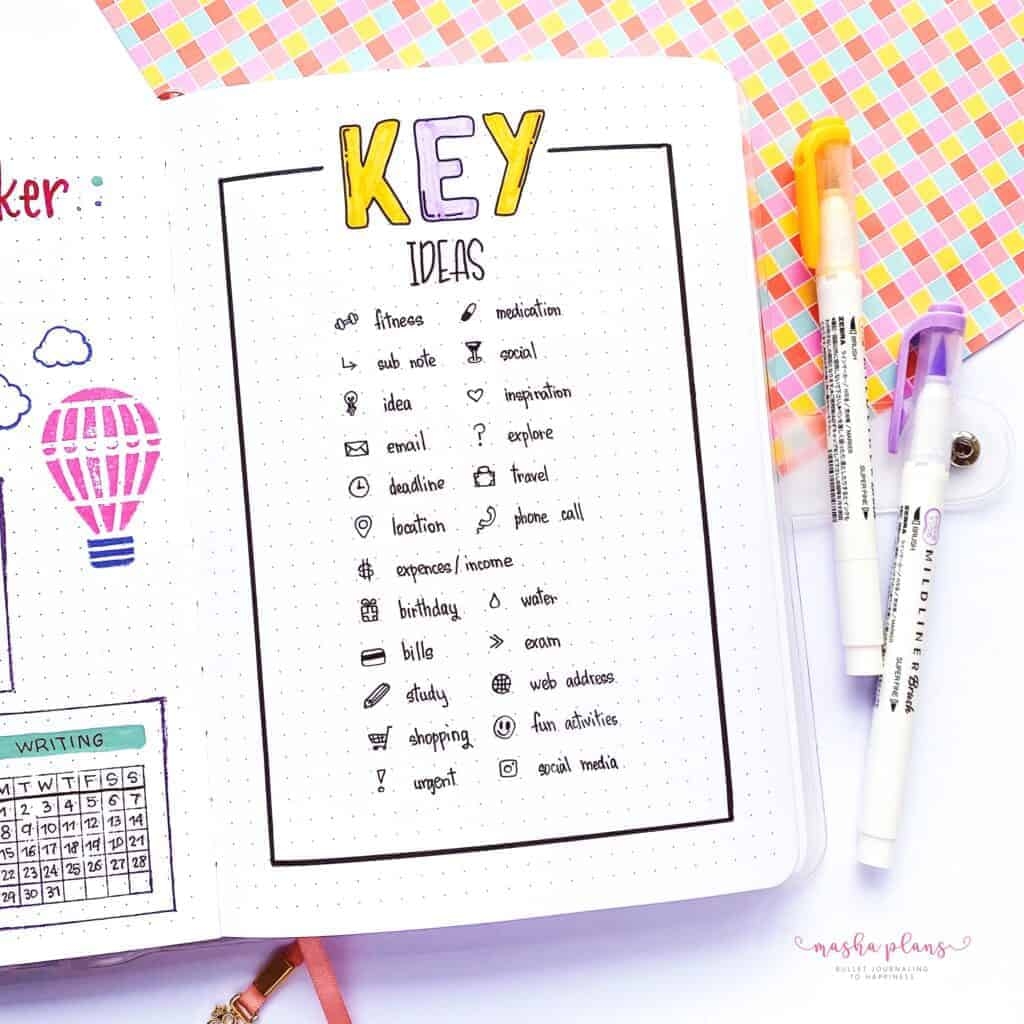 ker
KEY
IDEAS
fitness
medication
sub note
social
idea
inspiration
email
? explore
deadline
travel
location
phone call
$ expences/income
birthday
water
bills
>> exam
study
web address
shopping
fun activities
! urgent
social media
WRITING
M T W T F S S
1 2 3 4 5 6 7
8 9 10 11 12 13 14
15 16 17 18 19 20 21
22 23 24 25 26 27 28
29 30 31
ZEBRA
BRUSH
SUPER FINE
ZEBRA
BRUSH
MILDLINER Brush
SUPER FINE
masha plans
BULLET JOURNALING
TO HAPPINESS